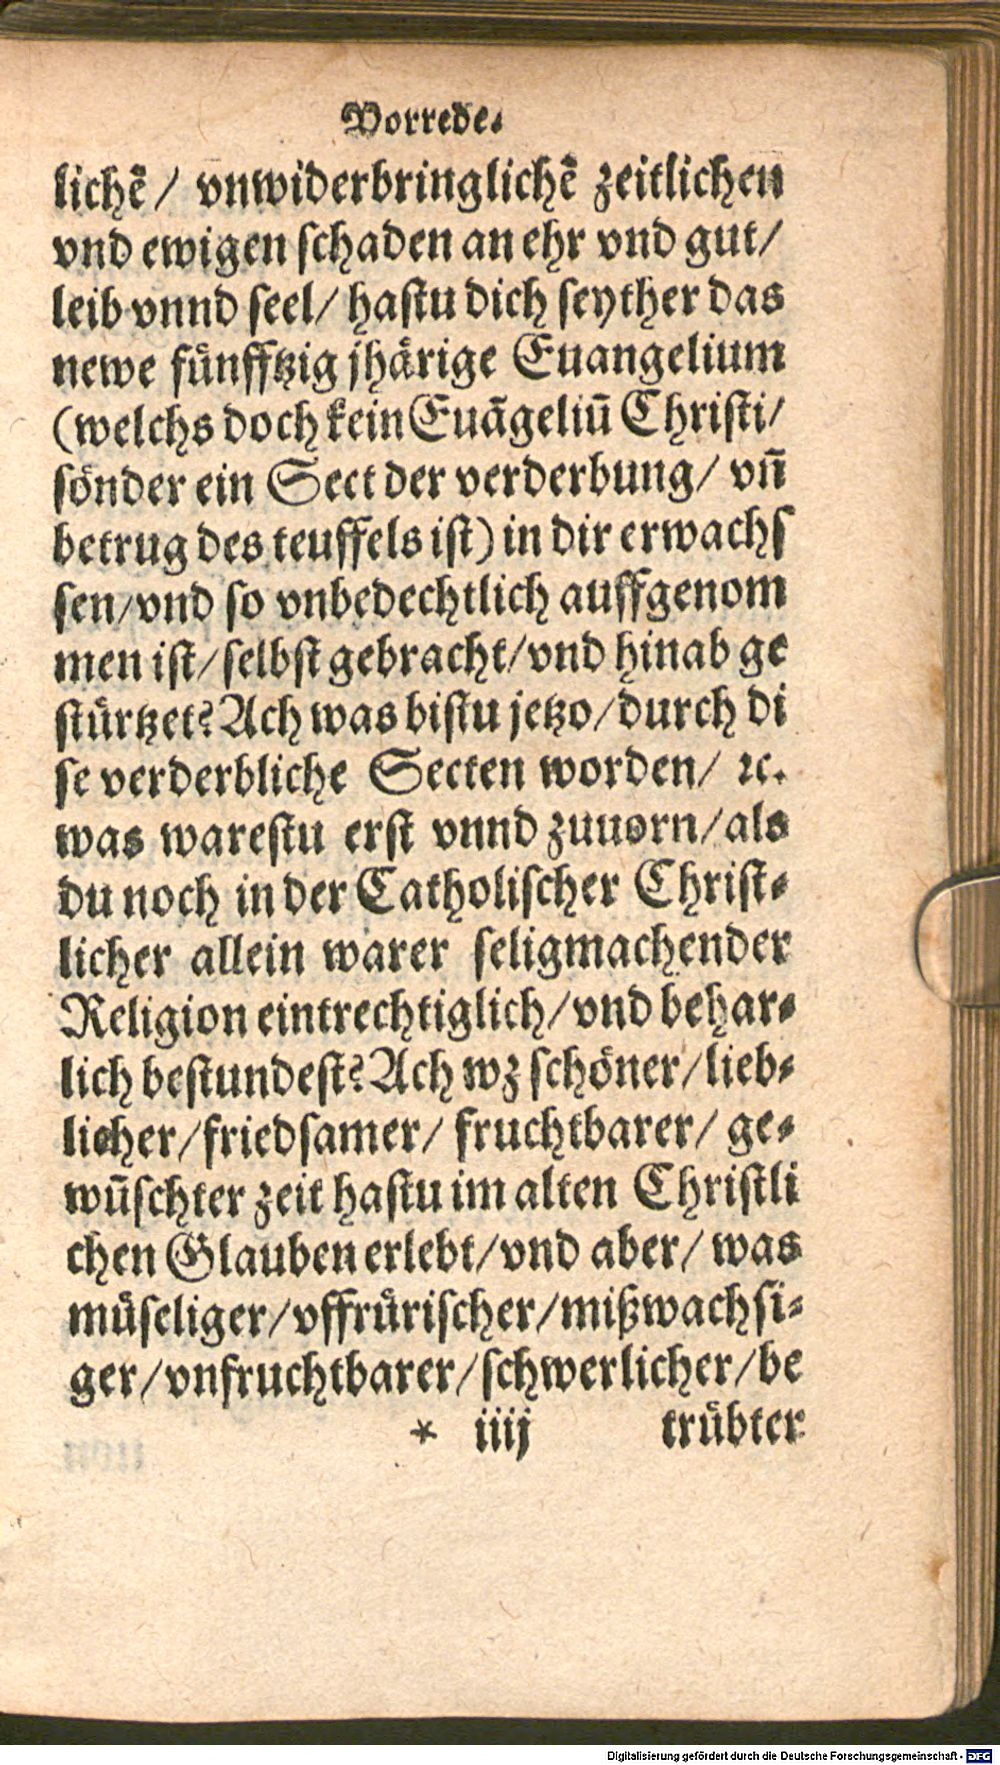 Vorrede.
lichẽ / vnwiderbringlichẽ zeitlichen
vnd ewigen ſchaden an ehr vnd gut/
leib vnnd ſeel/ haſtu dich ſeyther das
newe fuͤnfftzig jhaͤrige Euangelium
(welchs doch kein Euãgeliũ Chriſti/
ſoͤnder ein Sect der verderbung/ vñ
betrug des teuffels iſt) in dir erwachſ
ſen/vnd ſo vnbedechtlich auffgenom
men iſt/ſelbſt gebracht/vnd hinab ge
ſtuͤrtzet? Ach was biſtu jetzo/durch di
ſe verderbliche Secten worden/ ꝛc.
was wareſtu erſt vnnd zuuorn/als
du noch in der Catholiſcher Chriſt⸗
licher allein warer ſeligmachender
Religion eintrechtiglich/vnd behar⸗
lich beſtundeſt? Ach wz ſchoͤner/lieb⸗
licher/friedſamer/ fruchtbarer/ ge⸗
wũſchter zeit haſtu im alten Chriſtli
chen Glauben erlebt/vnd aber/ was
muͤſeliger/vffruͤriſcher/mißwachſi⸗
ger/vnfruchtbarer/ſchwerlicher/be
* iiij truͤbter
Digitalisierung gefördert durch die Deutsche Forschungsgemeinschaft - DFG